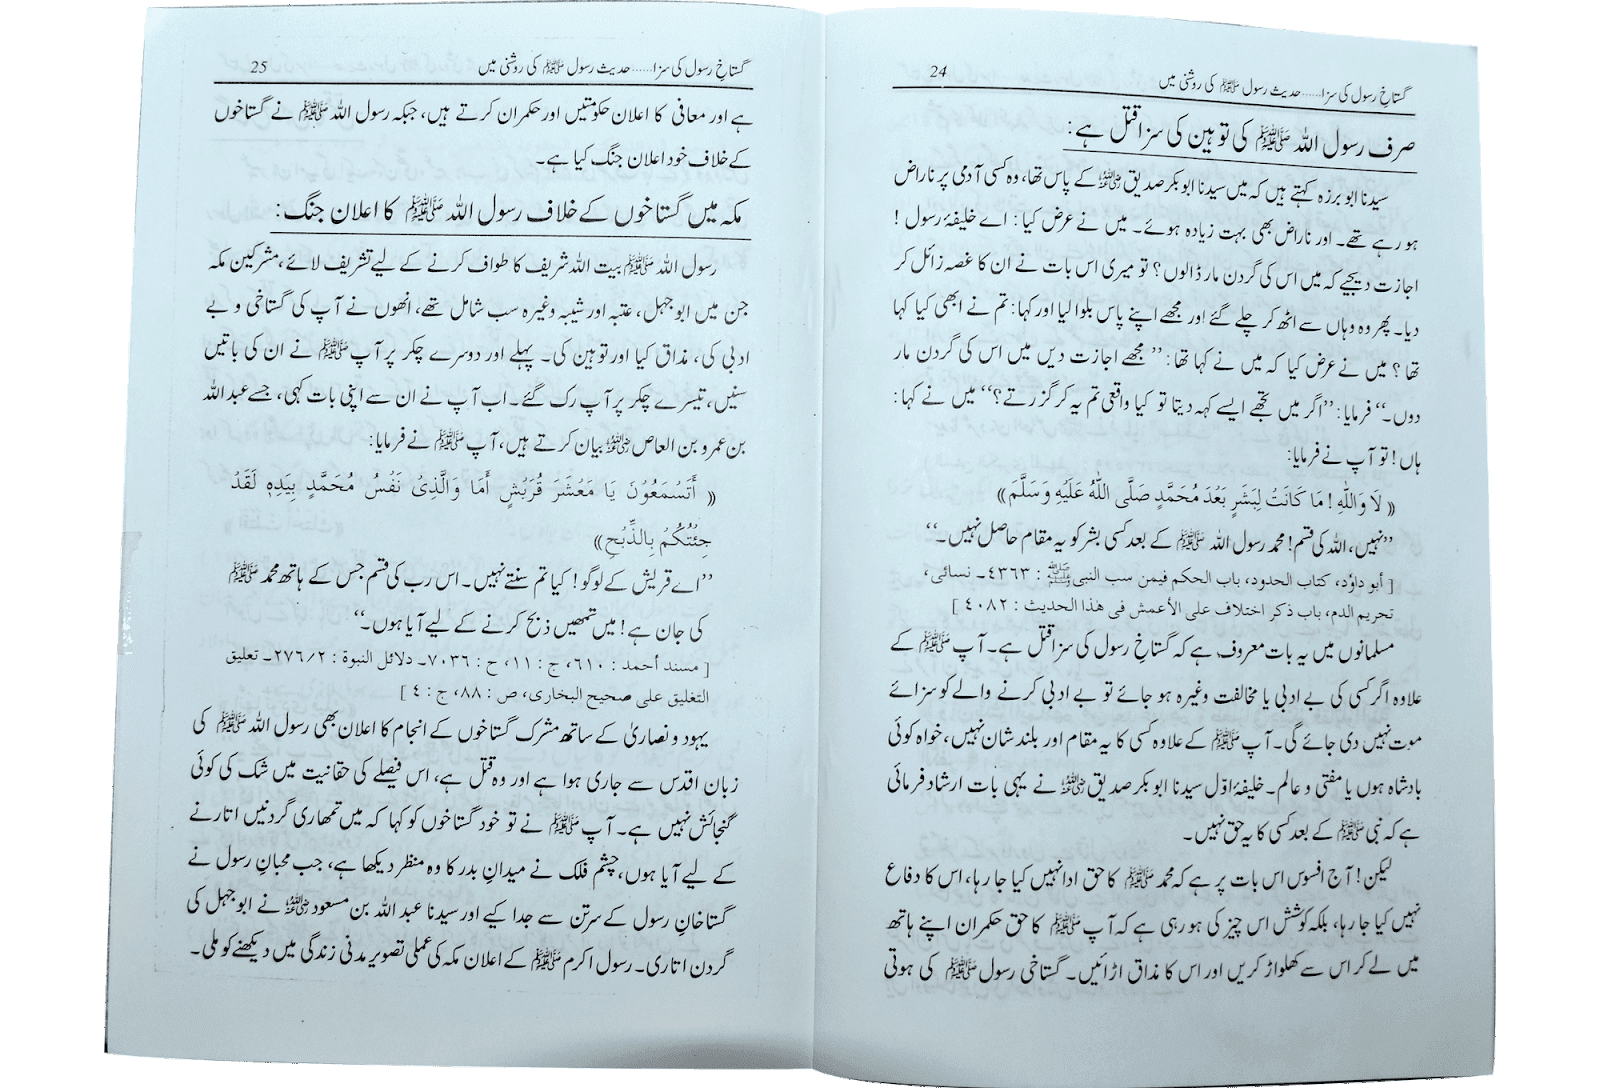 گستاخِ رسول کی سزا......حدیث رسول ﷺ کی روشنی میں 24
صرف رسول اللہ ﷺ کی توہین کی سزا قتل ہے:
سیدنا ابو برزہ کہتے ہیں کہ میں سیدنا ابو بکر صدیق رضی اللہ عنہ کے پاس تھا، وہ کسی آدمی پر ناراض
ہو رہے تھے۔ اور ناراض بھی بہت زیادہ ہوئے۔ میں نے عرض کیا: اے خلیفۂ رسول!
اجازت دیجیے کہ میں اس کی گردن مار ڈالوں؟ تو میری اس بات نے ان کا غصہ زائل کر
دیا۔ پھر وہ وہاں سے اٹھ کر چلے گئے اور مجھے اپنے پاس بلوا لیا اور کہا: تم نے ابھی کیا کہا
تھا؟ میں نے عرض کیا کہ میں نے کہا تھا: ’’مجھے اجازت دیں میں اس کی گردن مار
دوں۔‘‘ فرمایا: ’’اگر میں تجھے ایسے کہہ دیتا تو کیا واقعی تم یہ کر گزرتے؟‘‘ میں نے کہا:
ہاں! تو آپ نے فرمایا:
«لَا وَاللّٰهِ! مَا كَانَتْ لِبَشَرٍ بَعْدَ مُحَمَّدٍ صَلَّى اللّٰهُ عَلَيْهِ وَسَلَّمَ»
’’نہیں، اللہ کی قسم! محمد رسول اللہ ﷺ کے بعد کسی بشر کو یہ مقام حاصل نہیں۔‘‘
[أبو داوٗد، کتاب الحدود، باب الحکم فیمن سب النبی ﷺ : ٤٣٦٣۔ نسائی،
تحریم الدم، باب ذکر اختلاف علی الأعمش فی هٰذا الحدیث : ٤٠٨٢]
مسلمانوں میں یہ بات معروف ہے کہ گستاخِ رسول کی سزا قتل ہے۔ آپ ﷺ کے
علاوہ اگر کسی کی بے ادبی یا مخالفت وغیرہ ہو جائے تو بے ادبی کرنے والے کو سزائے
موت نہیں دی جائے گی۔ آپ ﷺ کے علاوہ کسی کا یہ مقام اور بلند شان نہیں، خواہ کوئی
بادشاہ ہوں یا مفتی و عالم۔ خلیفۂ اوّل سیدنا ابو بکر صدیق رضی اللہ عنہ نے یہی بات ارشاد فرمائی
ہے کہ نبی ﷺ کے بعد کسی کا یہ حق نہیں۔
لیکن! آج افسوس اس بات پر ہے کہ محمد ﷺ کا حق ادا نہیں کیا جا رہا، اس کا دفاع
نہیں کیا جا رہا، بلکہ کوشش اس چیز کی ہو رہی ہے کہ آپ ﷺ کا حق حکمران اپنے ہاتھ
میں لے کر اس سے کھلواڑ کریں اور اس کا مذاق اڑائیں۔ گستاخی رسول ﷺ کی ہوتی
گستاخِ رسول کی سزا......حدیث رسول ﷺ کی روشنی میں 25
ہے اور معافی کا اعلان حکومتیں اور حکمران کرتے ہیں، جبکہ رسول اللہ ﷺ نے گستاخوں
کے خلاف خود اعلان جنگ کیا ہے۔
مکہ میں گستاخوں کے خلاف رسول اللہ ﷺ کا اعلان جنگ:
رسول اللہ ﷺ بیت اللہ شریف کا طواف کرنے کے لیے تشریف لائے، مشرکین مکہ
جن میں ابو جہل، عتبہ اور شیبہ وغیرہ سب شامل تھے، انھوں نے آپ کی گستاخی و بے
ادبی کی، مذاق کیا اور توہین کی۔ پہلے اور دوسرے چکر پر آپ ﷺ نے ان کی باتیں
سنیں، تیسرے چکر پر آپ رک گئے۔ اب آپ نے ان سے اپنی بات کہی، جسے عبد اللہ
بن عمرو بن العاص رضی اللہ عنہ بیان کرتے ہیں، آپ ﷺ نے فرمایا:
«أَتَسْمَعُوْنَ يَا مَعْشَرَ قُرَيْشٍ أَمَا وَالَّذِىْ نَفْسُ مُحَمَّدٍ بِيَدِهٖ لَقَدْ
جِئْتُكُمْ بِالذِّبْحِ»
’’اے قریش کے لوگو! کیا تم سنتے نہیں۔ اس رب کی قسم جس کے ہاتھ محمد ﷺ
کی جان ہے! میں تمھیں ذبح کرنے کے لیے آیا ہوں۔‘‘
[مسند أحمد : ٦١٠، ج : ١١، ح : ٧٠٣٦۔ دلائل النبوة : ٢٧٦/٢۔ تعلیق
التغلیق علی صحیح البخاری، ص : ٨٨، ج : ٤]
یہود و نصاریٰ کے ساتھ مشرک گستاخوں کے انجام کا اعلان بھی رسول اللہ ﷺ کی
زبان اقدس سے جاری ہوا ہے اور وہ قتل ہے، اس فیصلے کی حقانیت میں شک کی کوئی
گنجائش نہیں ہے۔ آپ ﷺ نے تو خود گستاخوں کو کہا کہ میں تمھاری گردنیں اتارنے
کے لیے آیا ہوں، چشم فلک نے میدانِ بدر کا وہ منظر دیکھا ہے، جب محبانِ رسول نے
گستاخانِ رسول کے سر تن سے جدا کیے اور سیدنا عبد اللہ بن مسعود رضی اللہ عنہ نے ابو جہل کی
گردن اتاری۔ رسول اکرم ﷺ کے اعلان مکہ کی عملی تصویر مدنی زندگی میں دیکھنے کو ملی۔